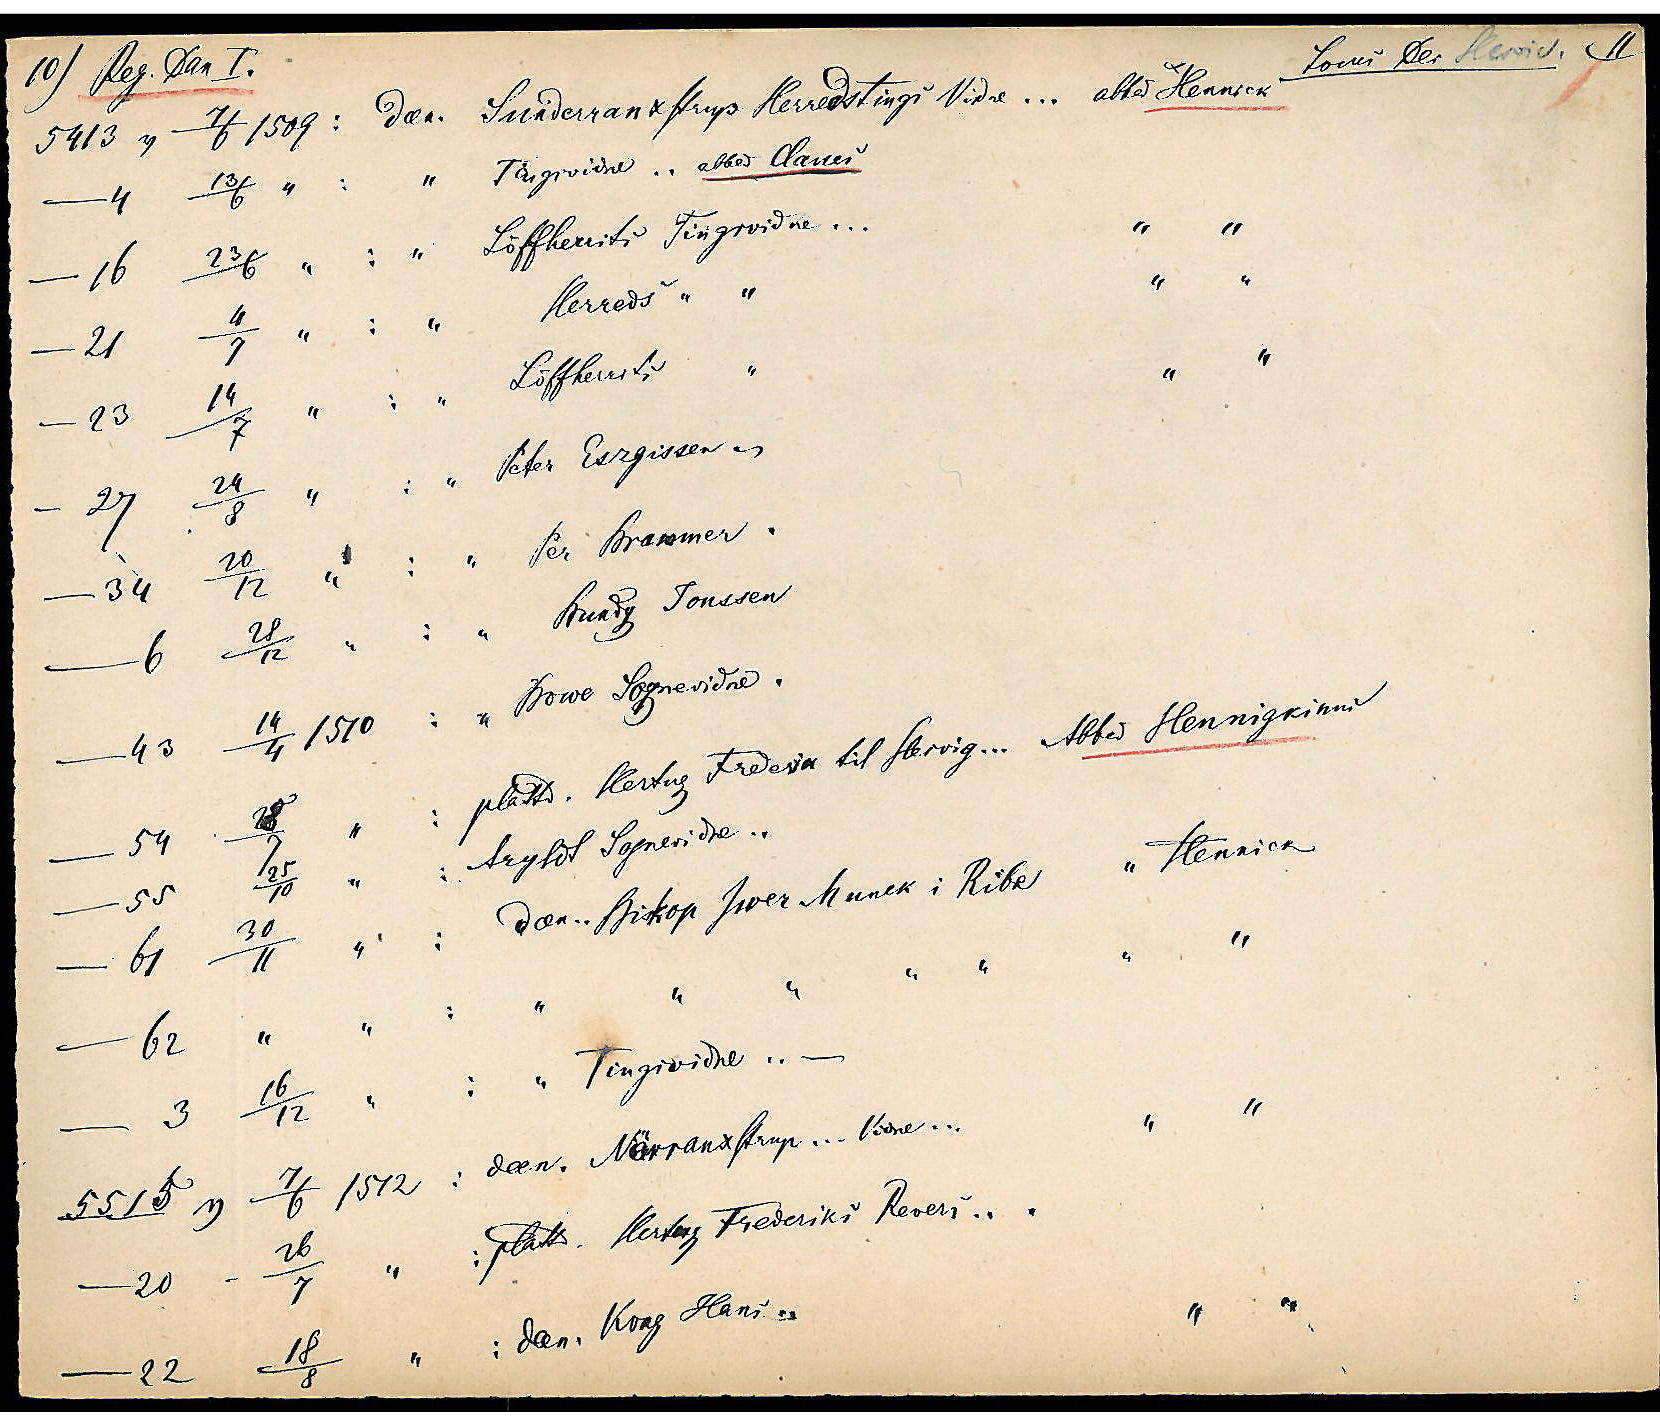 10) Reg. Dan I. Locus Dei Slesvid. 11
5413 n 7/6 1509 : Dæn. Sunderranxstrup Herredstings Vidne ... abbed Hennick
— 4 13/6 " : " Tingsvidne .. abbed Claues
— 16 23/6 " : " Löffherrits Tingsvidne ... " "
— 21 4/7 " : " Herreds " " " "
— 23 14/7 " : " Löffherrits " " "
— 27 24/8 " : " Peter Esrgissen
— 34 20/12 " : " Per Brammer .
— 6 28/12 " : " Bundy Jonssen
— 43 14/4 1510 : " Howe Sognevidne .
— 54 28/7 " : plattd. Hertug Frederik til Slesvig ... Abbed Hennigkinus
— 55 25/10 " : Aryldt Sognevidne ..
— 61 30/11 " : Dæn .. Biskop Jwer Munck i Ribe " Hennick
— 62 " " : " " " " " " "
— 3 16/12 " : " Tingsvidne .. —
5515 n 7/6 1512 : dæn. Nörranxstrup ... Vidne ... " "
— 20 - 26/7 " : plattd. Hertug Frederiks Revers .. .
— 22 18/8 " : dæn. Kong Hans .. " "